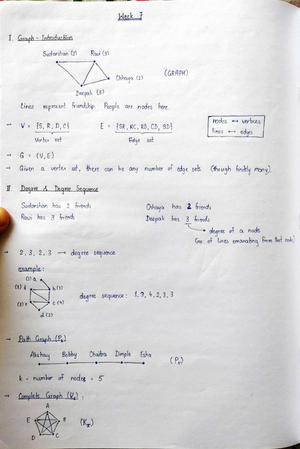 Week 7
I. Graph - Introduction
Sudarshan (S) Ravi (R)
Chhaya (C) (GRAPH)
Deepak (D)
Lines represent friendship. People are nodes here.
→ V = {S, R, D, C} E = {SR, RC, RD, CD, SD}
Vertex set Edge set
nodes ↔ vertices
lines ↔ edges
→ G = (V, E)
→ Given a vertex set, there can be any number of edge sets. (though finitely many).
II Degree & Degree Sequence
Sudarshan has 2 friends Chhaya has 2 friends
Ravi has 3 friends Deepak has 3 friends
degree of a node
(no. of lines emanating from that node)
→ 2, 3, 2, 3 → degree sequence
example:
degree sequence: 1, 3, 4, 2, 3, 3
→ Path Graph (Pk)
Akshay Bobby Chaitra Dimple Esha
(P5)
k = number of nodes = 5
→ Complete Graph (Kk):
A
E B
D C